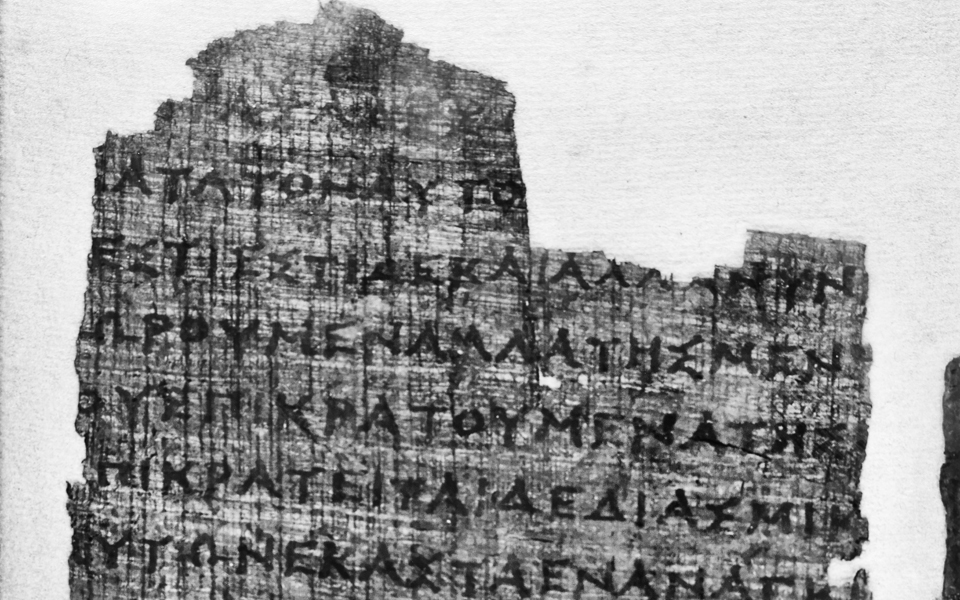 ΚΑΤΑΤΟΝΑΥΤΟ
ΕΣΤΙΕΣΤΙΔΕΚΑΙΑΛΛΑΝΥΝ
ΩΡΟΥΜΕΝΑΛΛΑΤΗΣΜΕΝ
ΟΥΕΠΙΚΡΑΤΟΥΜΕΝΑΤΗΣ
ΠΙΚΡΑΤΕΙΤΑΙΔΕΔΙΑΣΜΙΚ
ΥΤΩΝΕΚΑΣΤΑΕΝΑΝΑΓΚ